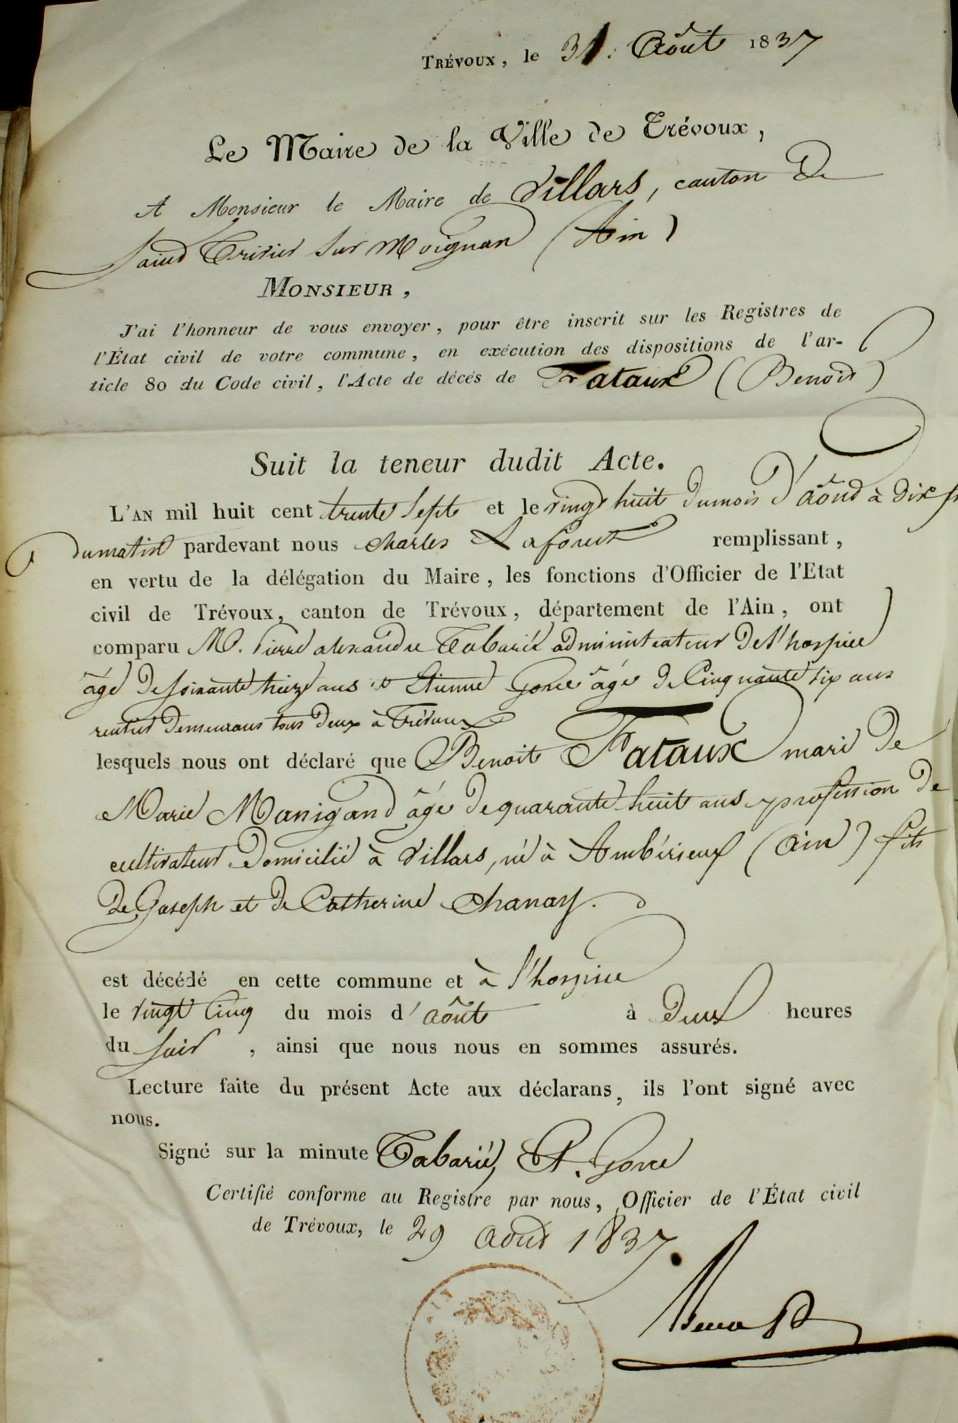 TRÉVOUX, le 31. Août 1837
Le Maire de la Ville de Trévoux,
A Monsieur le Maire de Villars, canton de
Saind Trivier sur Moignan (Ain)
MONSIEUR,
J'ai l'honneur de vous envoyer, pour être inscrit sur les Registres de
l'État civil de votre commune, en exécution des dispositions de l'ar-
ticle 80 du Code civil, l'Acte de décés de Fataux (Benoit)
Suit la teneur dudit Acte.
L'AN mil huit cent trente sept et le vingt huit du mois d'aôud à dix
du matin pardevant nous Charles Laforest remplissant,
en vertu de la délégation du Maire, les fonctions d'Officier de l'Etat
civil de Trévoux, canton de Trévoux, département de l'Ain, ont
comparu M. Pierre alexandre Tabarié administrateur de l'hospice
âgé de soixante treize ans et Etienne Gonce âgé de Cinquante six ans
rentier demeurans tous deux à Trévoux
lesquels nous ont déclaré que Benoit Fataux mari de
Marie Manigand âgé de quarante huit ans profession de
cultivateur domicilié à Villars, né à Ambérieux (Ain) fils
de Joseph et de Catherine Chanay.
est décédé en cette commune et à l'hospice
le vingt Cinq du mois d'août à deux heures
du soir, ainsi que nous nous en sommes assurés.
Lecture faite du présent Acte aux déclarans, ils l'ont signé avec
nous.
Signé sur la minute Tabarié, Et. Gonce
Certifié conforme au Registre par nous, Officier de l'État civil
de Trévoux, le 29 aoud 1837.